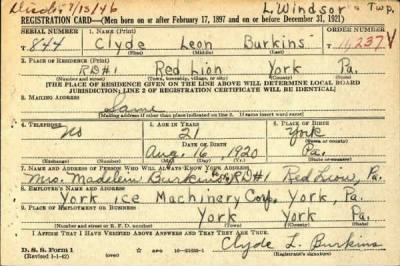 Died 7/15/46
L. Windsor Twp.
REGISTRATION CARD—(Men born on or after February 17, 1897 and on or before December 31, 1921)
SERIAL NUMBER 1. NAME (Print) ORDER NUMBER
T 844 Clyde Leon Burkins 11,237
(First) (Middle) (Last)
2. PLACE OF RESIDENCE (Print)
RD#1 Red Lion York Pa.
(Number and street) (Town, township, village, or city) (County) (State)
[THE PLACE OF RESIDENCE GIVEN ON THE LINE ABOVE WILL DETERMINE LOCAL BOARD
JURISDICTION; LINE 2 OF REGISTRATION CERTIFICATE WILL BE IDENTICAL]
3. MAILING ADDRESS
Same
(Mailing address if other than place indicated on line 2. If same insert word same)
4. TELEPHONE 5. AGE IN YEARS 6. PLACE OF BIRTH
No 21 York
DATE OF BIRTH (Town or county)
Aug. 16, 1920 Pa.
(Exchange) (Number) (Mo.) (Day) (Yr.) (State or country)
7. NAME AND ADDRESS OF PERSON WHO WILL ALWAYS KNOW YOUR ADDRESS
Mrs. Madelein Burkins RD#1 Red Lion, Pa.
8. EMPLOYER'S NAME AND ADDRESS
York ice Machinery Corp. York, Pa.
9. PLACE OF EMPLOYMENT OR BUSINESS
York York Pa.
(Number and street or R. F. D. number) (Town) (County) (State)
I AFFIRM THAT I HAVE VERIFIED ABOVE ANSWERS AND THAT THEY ARE TRUE.
D. S. S. Form 1
(Revised 1-1-42) (over)
Clyde L. Burkins